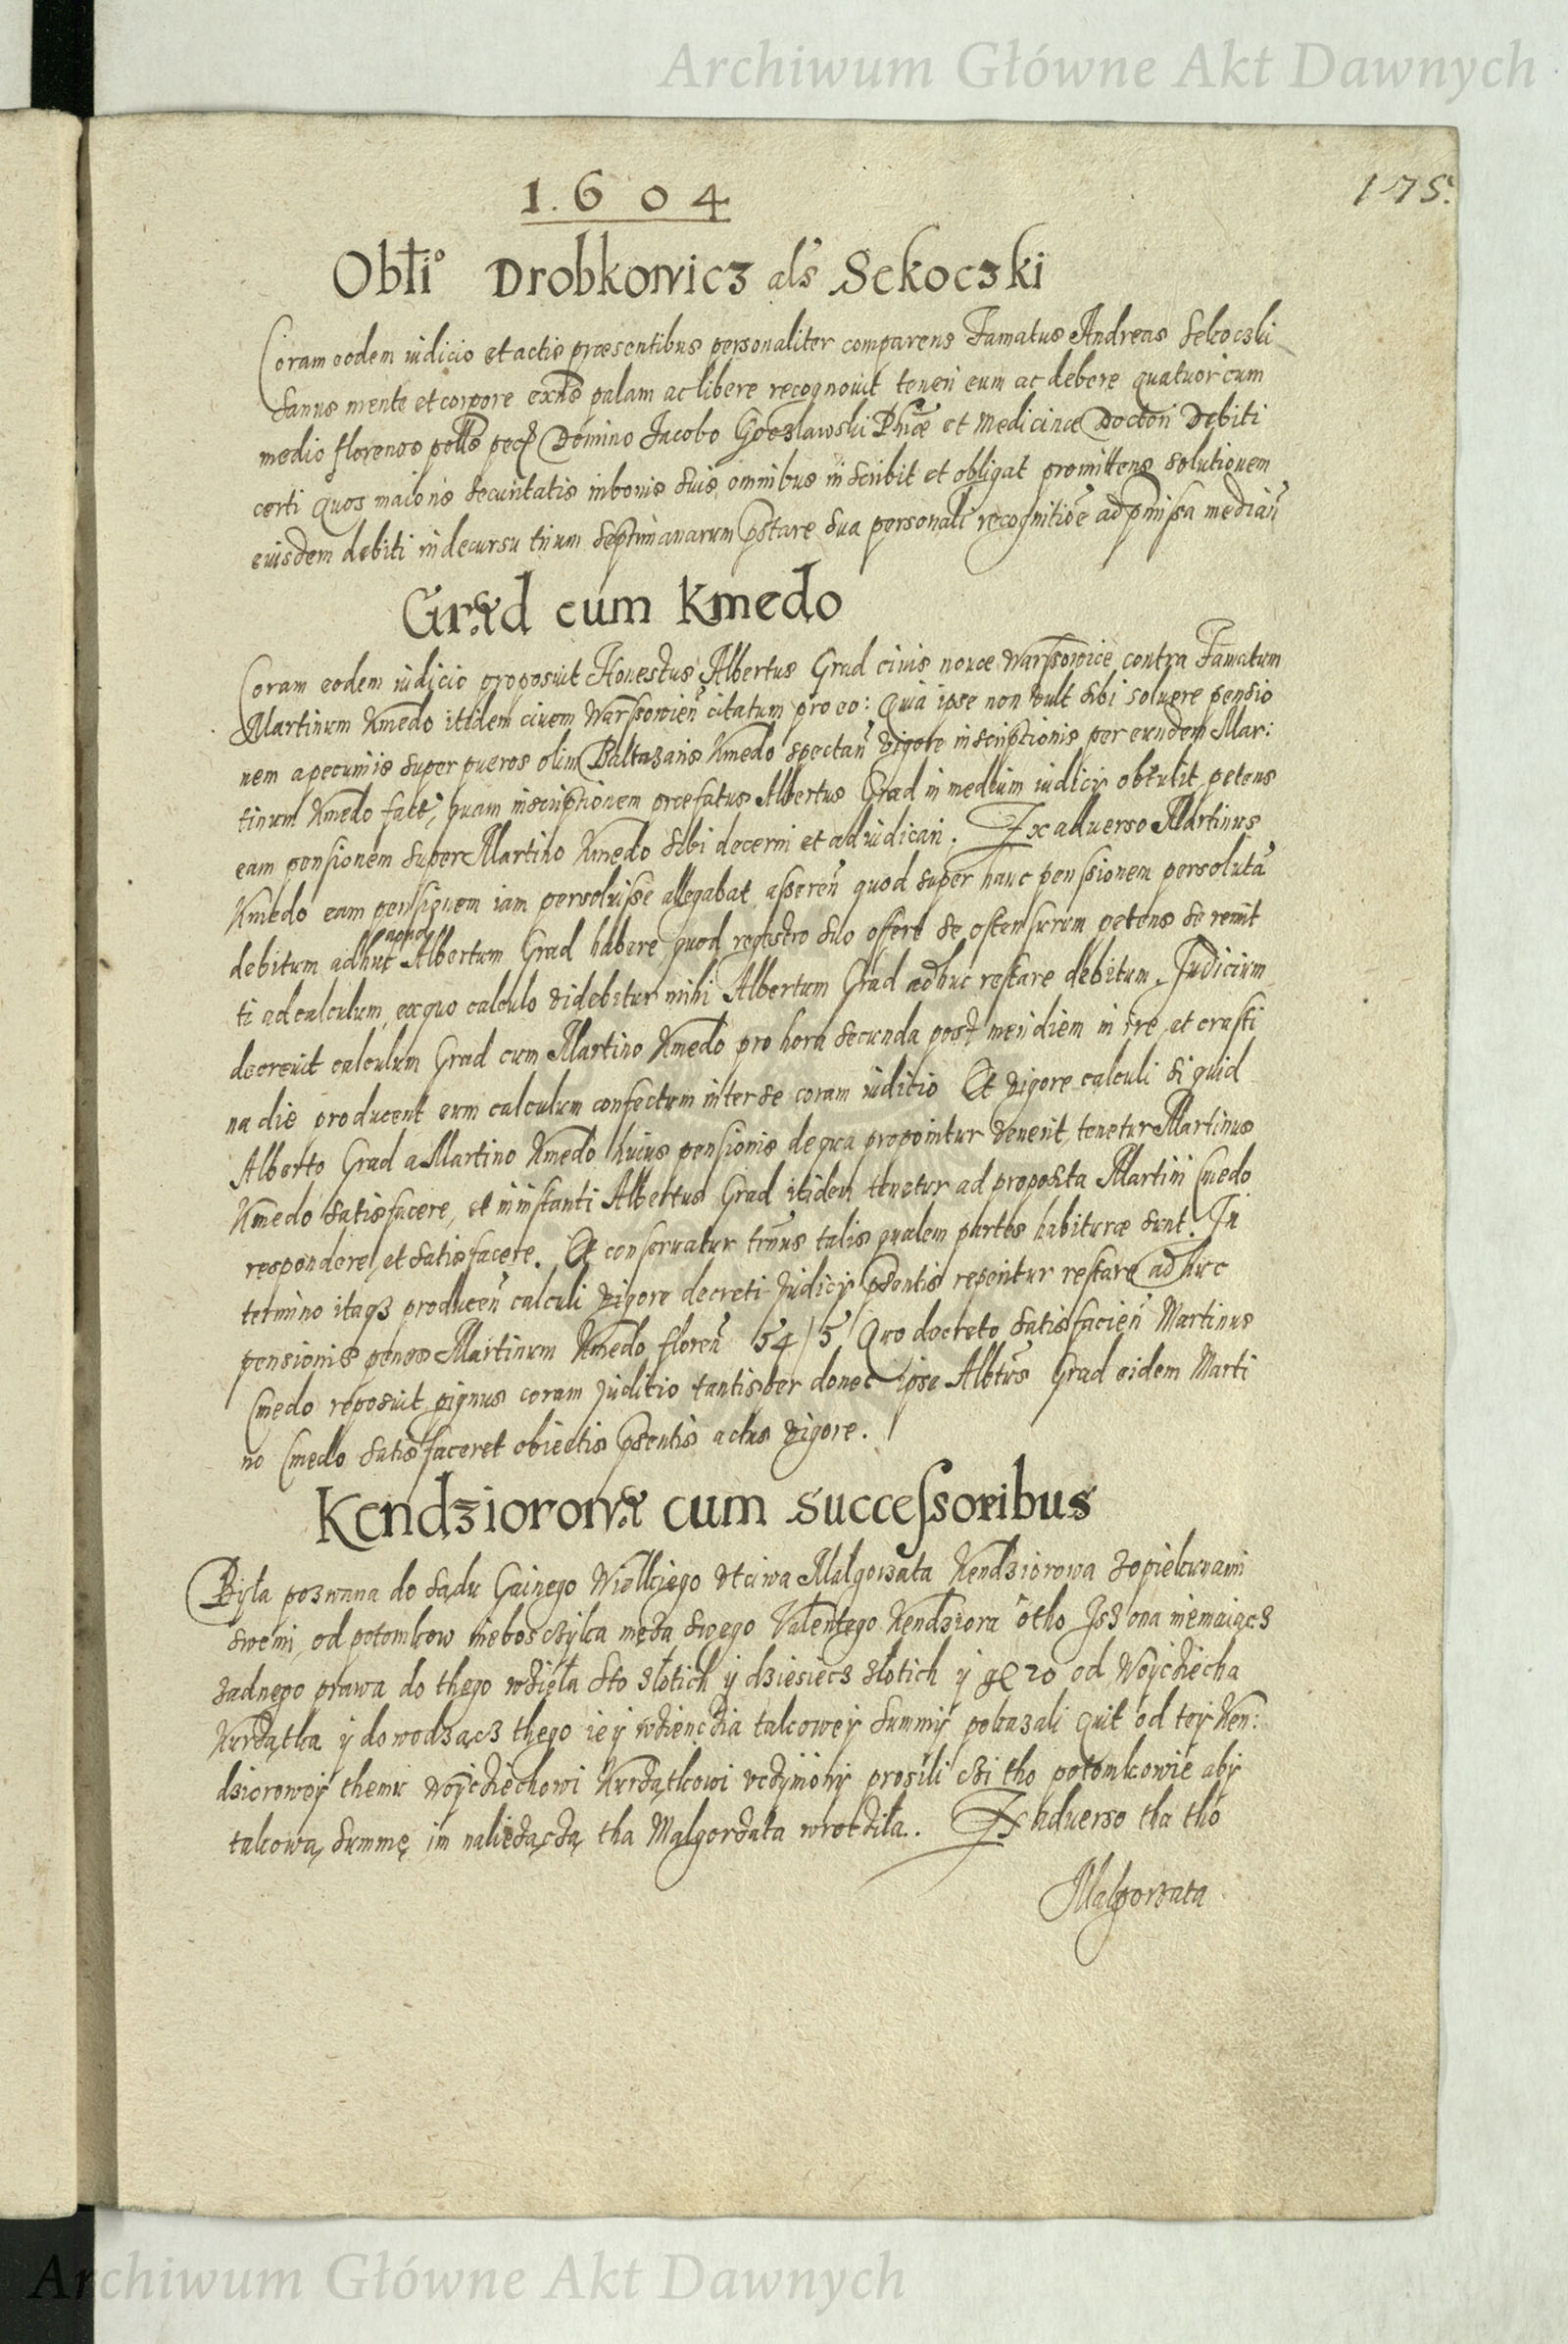 Archiwum Główne Akt Dawnych
1.604
175.
Obłio Drobkowicz als Sekoczki
Coram eodem iudicio et actis præsentibus personaliter comparens Famatus Andreas Sekoczki
sanus mente et corpore exñs palam ac libere recognovit teneri eum ac debere quatuor cum
medio florenos polls Domino Jacobo Goszlawski Phiæ et Medicinæ Doctori Debiti
certi quos maioris securitatis in bonis suis omnibus inscribit et obligat promittens solutionem
eiusdem debiti in decursu trium septimanarum pstare sua personali recognitioẽ ad pmissa median̄
Grad cum Kmedo
Coram eodem iudicio proposuit Honestus Albertus Grad civis novæ Warssoviæ contra Famatum
Martinum Kmedo itidem civem Warssovien̄ citatum pro eo: Quia ipse non vult sibi solvere pensio
nem a pecuniis super pueros olim Baltazaris Kmedo spectan̄ vigore inscriptionis per eundem Mar:
tinum Kmedo factẽ, quam inscriptionem præfatus Albertus Grad in medium iudicii obtulit petens
eam pensionem super Martino Kmedo sibi decerni et adiudicari. Ex adverso Martinus
Kmedo eam pensionem iam persolvisse allegabat asseren̄ quod super hanc penssionem persolutã
debitum adhuc apud Albertum Grad habere quod regestro suo offert se ostensurum petens se remit
ti ad calculum, ex quo calculo videbitur mihi Albertum Grad adhuc restare debitum. Judicium
decrevit calculum Grad cum Martino Kmedo pro hora secunda post meridiem in ire et crasti
na die producent eum calculum confectum inter se coram iuditio Et vigore calculi si quid
Alberto Grad a Martino Kmedo huius pensionis de qua proponitur venerit, tenetur Martinus
Kmedo satisfacere, et in instanti Albertus Grad itidem tenetur ad proposita Martini Cmedo
respondere et satisfacere. Et conservatur trñus talis qualem partes habituræ sunt. In
termino itaqz producen̄ calculi vigore decreti Judicii psentis reperitur restare adhuc
pensionis penes Martinum Kmedo floren̄ 54/5 Quo decreto satisfacien̄ Martinus
Cmedo reposuit pignus coram Juditio tantisper donec ipse Albtus Grad eidem Marti
no Cmedo satisfaceret obiectis psentis actus vigore.
Kendziorowa cum successoribus
Byla pozwana do sądu Gainego Wiellkiego vtciwa Malgorzata Kendziorowa z opiekunami
swemi, od potomkow nieboszczyka męża swego Valentego Kendziora o tho Jsz ona niemaiącz
żadnego prawa do thego wzięła sto złotich y dziesiecz złotich y gr 20 od Woyciecha
Kurżątka y dowodzącz thego iey wzienczia takowey summy pokazali Quit od tey Ken:
dziorowey themu Woyciechowi Kurżątkowi vczyniony prosili czi tho potomkowie aby
takową summę im nalieżączą tha Malgorzata wrocziła. Ex adverso tha tho
Malgorzata
Archiwum Główne Akt Dawnych